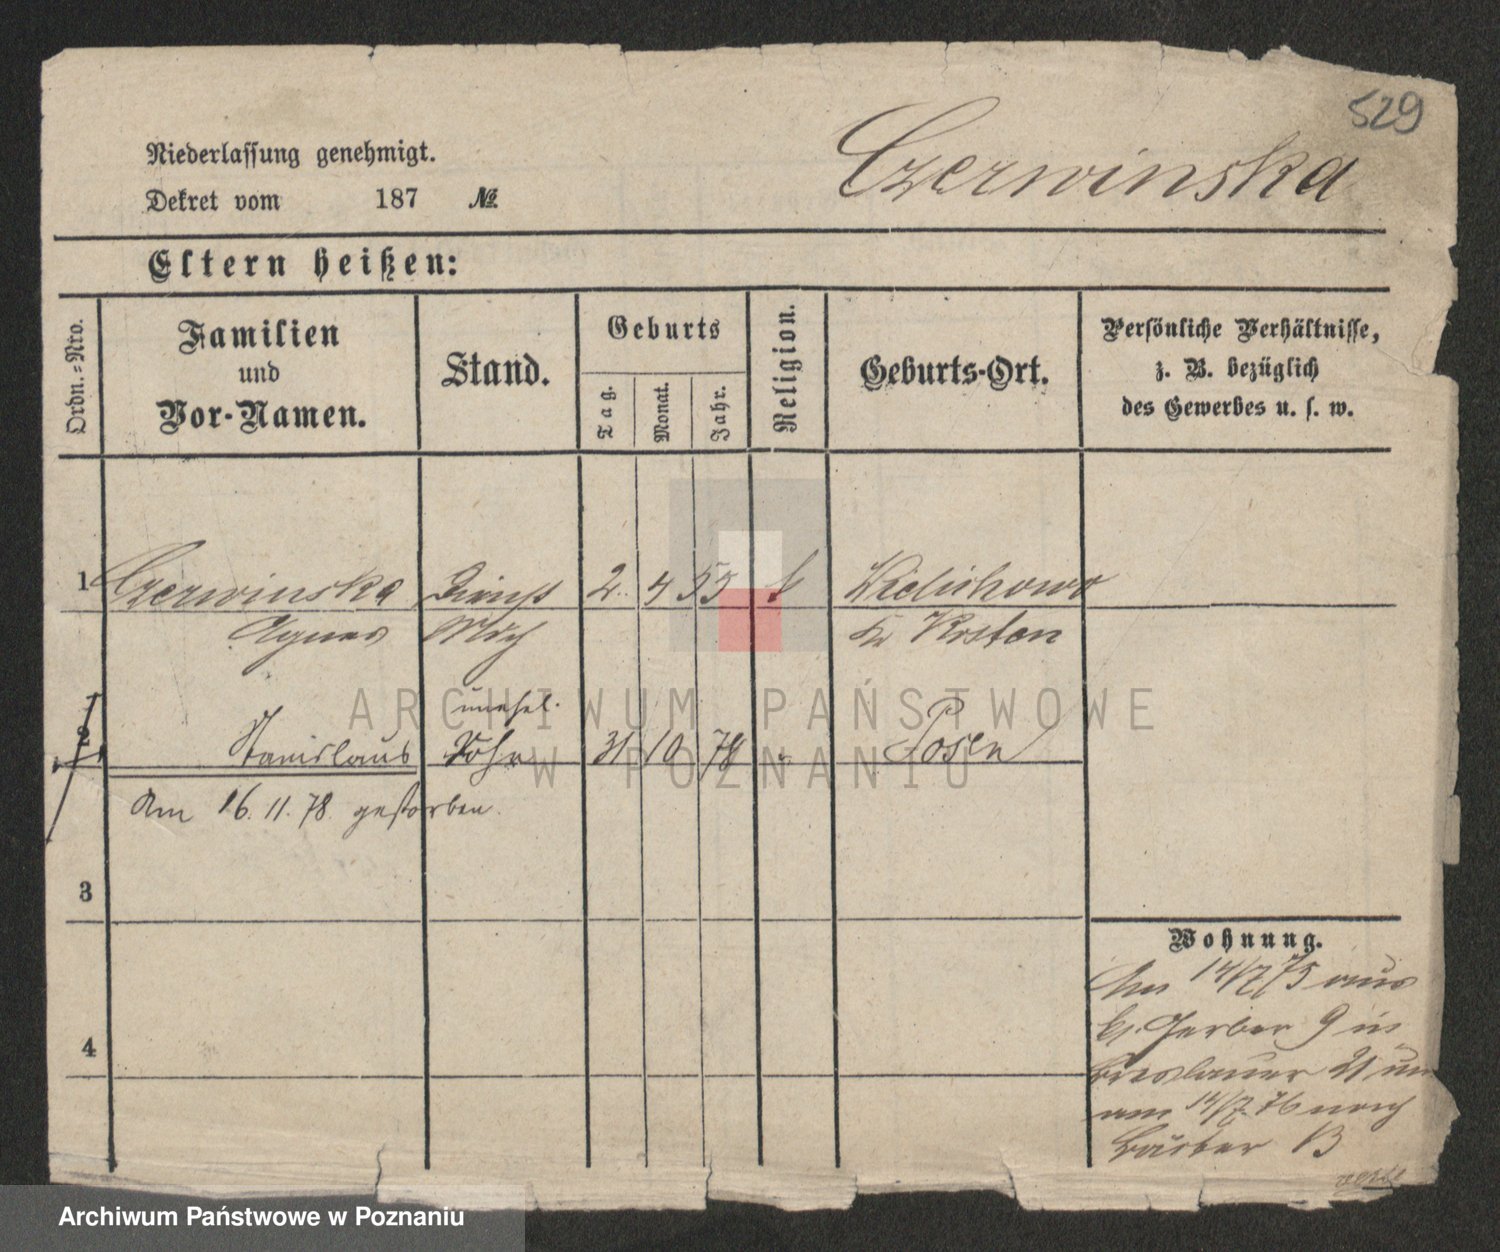 529
Niederlassung genehmigt.
Czerwinska
Dekret vom 187 №
Eltern heißen:
Ordn.-Nro.
Familien
und
Vor-Namen.
Stand.
Geburts
Tag.
Monat.
Jahr.
Religion.
Geburts-Ort.
Persönliche Verhältnisse,
z. B. bezüglich
des Gewerbes u. s. w.
1 Czerwinska Dienst 2. 4 55 k Wielichowo
Agnes Kr Kosten
unehel.
2 Stanislaus Sohn 31 10 78 Posen
Am 16. 11. 78 gestorben.
3
4
Wohnung.
Am 14/7 75 aus
kl. Gerber 9 in
Breslauer 21
am 14/7. 76 nach
13
ARCHIWUM PAŃSTWOWE
W POZNANIU
Archiwum Państwowe w Poznaniu